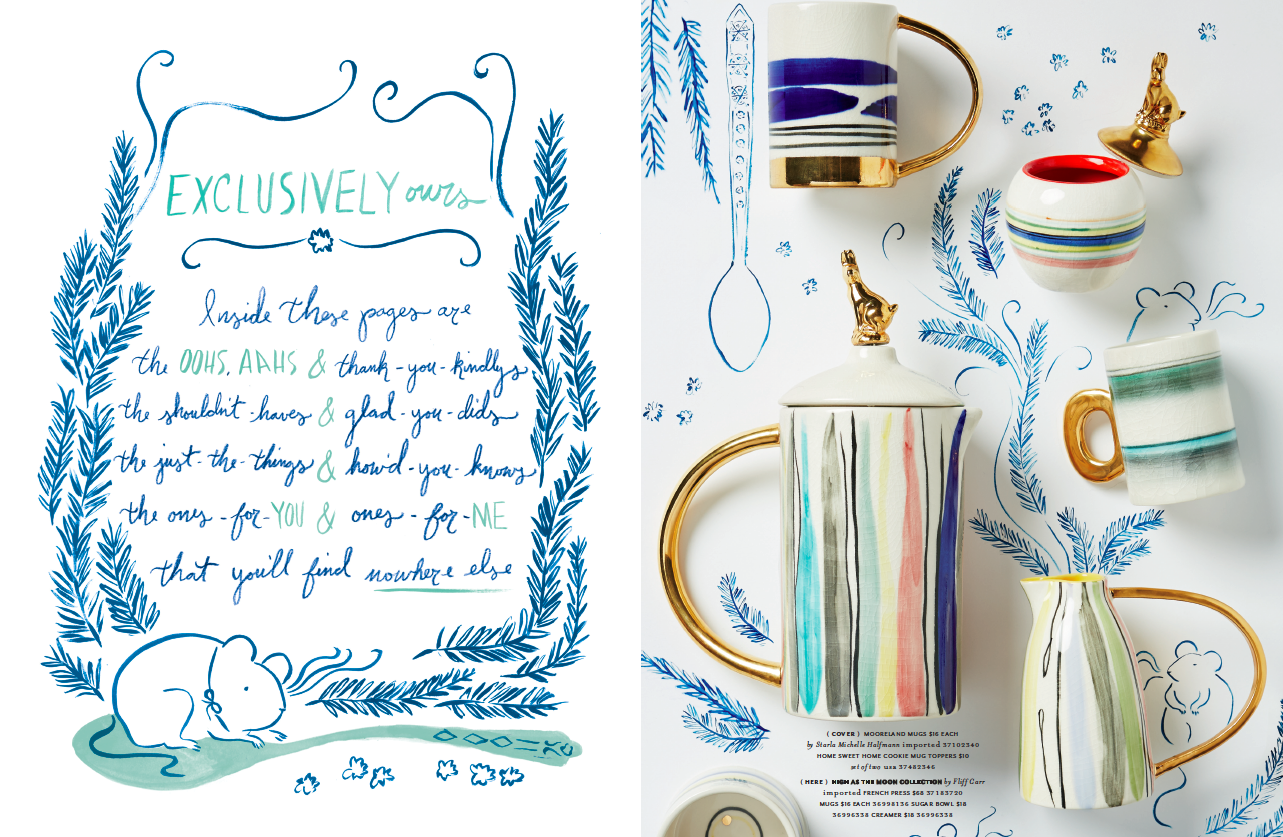 EXCLUSIVELY ours
Inside these pages are
the OOHS, AAHS & thank-you-kindlys,
the shouldn't-haves & glad-you-dids
the just-the-things & how'd-you-knows
the ones-for-YOU & ones-for-ME
that you'll find nowhere else
( COVER ) MOORELAND MUGS $16 EACH
by Starla Michelle Halfmann imported 37102340
HOME SWEET HOME COOKIE MUG TOPPERS $10
set of two usa 37482346
( HERE ) HIGH AS THE MOON COLLECTION by Fliff Carr
imported FRENCH PRESS $68 37183720
MUGS $16 EACH 36998136 SUGAR BOWL $18
36996338 CREAMER $18 36996338